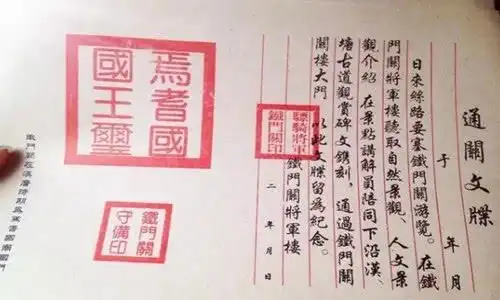 通關文牒
于 年 月
日來絲路要塞鐵門關游覽。在鐵
門關將軍樓聽取自然景觀、人文景
觀介紹 在景點講解員陪同下沿漢、
塘古道觀賞碑文鐫刻，通過鐵門關
關樓大門 以此文牒留為紀念。
鐵門關將軍樓
二 年 月 日
驃騎將軍
鐵門關印
焉耆國
國王璽
鐵門關
守備印